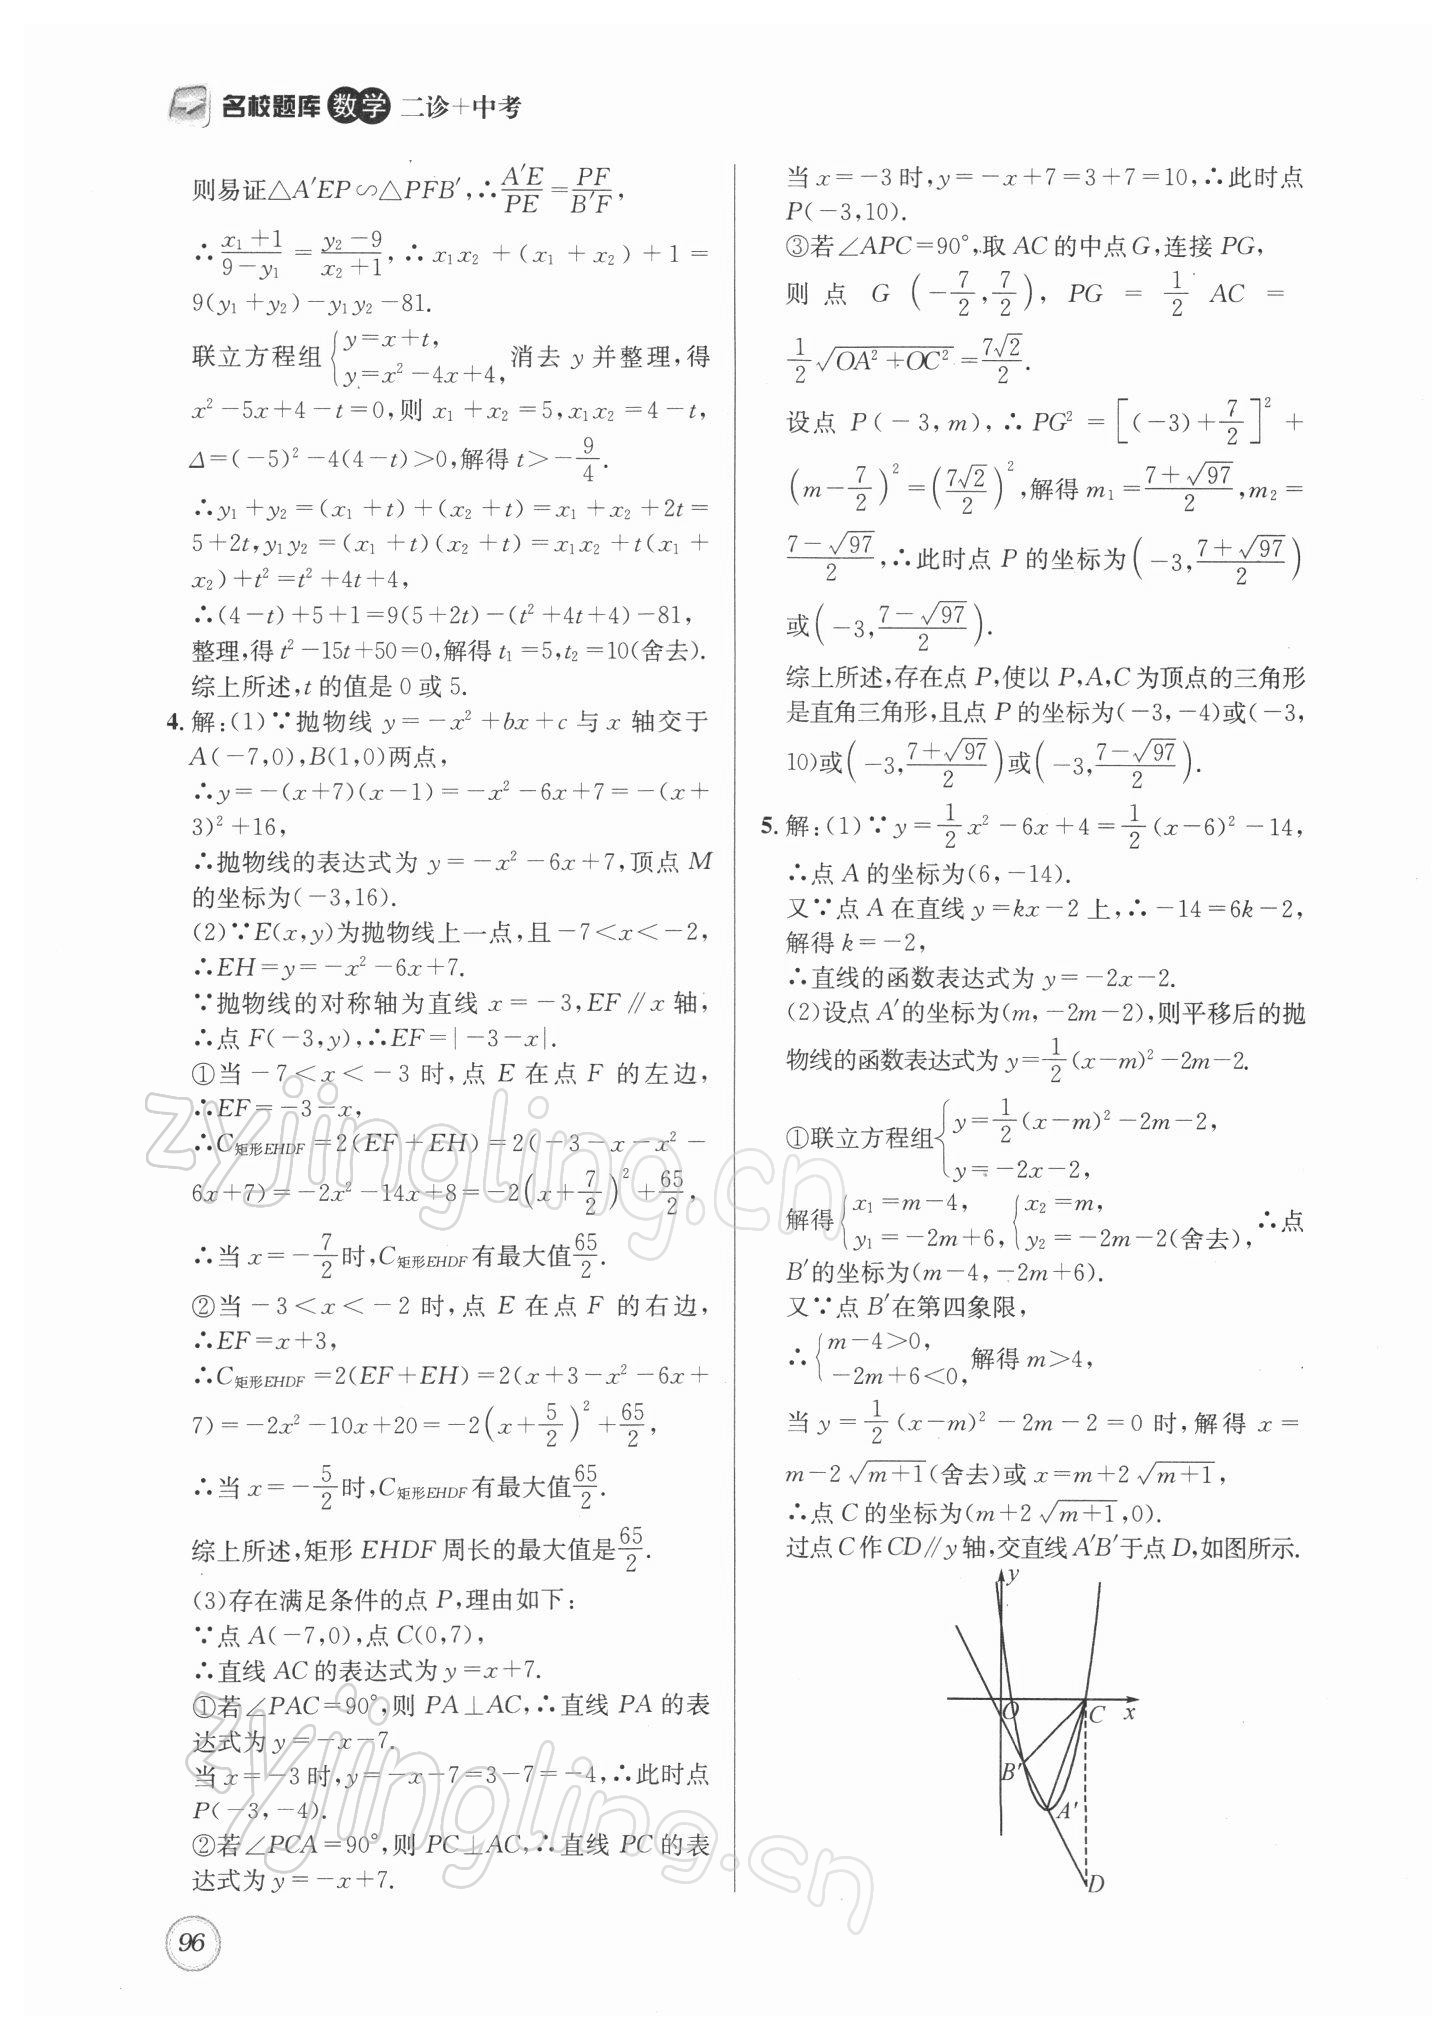 名校题库 数学 二诊+中考
则易证△A′EP∽△PFB′,∴A′E/PE=PF/B′F,
∴(x₁+1)/(9-y₁)=(y₂-9)/(x₂+1),∴x₁x₂+(x₁+x₂)+1=
9(y₁+y₂)-y₁y₂-81.
联立方程组{y=x+t, y=x²-4x+4, 消去 y 并整理,得
x²-5x+4-t=0,则 x₁+x₂=5,x₁x₂=4-t,
Δ=(-5)²-4(4-t)>0,解得 t>-9/4.
∴y₁+y₂=(x₁+t)+(x₂+t)=x₁+x₂+2t=
5+2t,y₁y₂=(x₁+t)(x₂+t)=x₁x₂+t(x₁+
x₂)+t²=t²+4t+4,
∴(4-t)+5+1=9(5+2t)-(t²+4t+4)-81,
整理,得 t²-15t+50=0,解得 t₁=5,t₂=10(舍去).
综上所述,t 的值是 0 或 5.
4. 解:(1)∵抛物线 y=-x²+bx+c 与 x 轴交于
A(-7,0),B(1,0)两点,
∴y=-(x+7)(x-1)=-x²-6x+7=-(x+
3)²+16,
∴抛物线的表达式为 y=-x²-6x+7,顶点 M
的坐标为(-3,16).
(2)∵E(x,y)为抛物线上一点,且-7<x<-2,
∴EH=y=-x²-6x+7.
∵抛物线的对称轴为直线 x=-3,EF∥x 轴,
∴点 F(-3,y),∴EF=|-3-x|.
①当-7<x<-3 时,点 E 在点 F 的左边,
∴EF=-3-x,
∴C矩形EHDF=2(EF+EH)=2(-3-x-x²-
6x+7)=-2x²-14x+8=-2(x+7/2)²+65/2,
∴当 x=-7/2时,C矩形EHDF有最大值65/2.
②当-3<x<-2 时,点 E 在点 F 的右边,
∴EF=x+3,
∴C矩形EHDF=2(EF+EH)=2(x+3-x²-6x+
7)=-2x²-10x+20=-2(x+5/2)²+65/2,
∴当 x=-5/2时,C矩形EHDF有最大值65/2.
综上所述,矩形 EHDF 周长的最大值是65/2.
(3)存在满足条件的点 P,理由如下:
∵点 A(-7,0),点 C(0,7),
∴直线 AC 的表达式为 y=x+7.
①若∠PAC=90°,则 PA⊥AC,∴直线 PA 的表
达式为 y=-x-7.
当 x=-3 时,y=-x-7=3-7=-4,∴此时点
P(-3,-4).
②若∠PCA=90°,则 PC⊥AC,∴直线 PC 的表
达式为 y=-x+7.
当 x=-3 时,y=-x+7=3+7=10,∴此时点
P(-3,10).
③若∠APC=90°,取 AC 的中点 G,连接 PG,
则点 G(-7/2,7/2),PG=1/2 AC=
1/2√(OA²+OC²)=7√2/2.
设点 P(-3,m),∴PG²=[(-3)+7/2]²+
(m-7/2)²=(7√2/2)²,解得 m₁=(7+√97)/2,m₂=
(7-√97)/2,∴此时点 P 的坐标为(-3,(7+√97)/2)
或(-3,(7-√97)/2).
综上所述,存在点 P,使以 P,A,C 为顶点的三角形
是直角三角形,且点 P 的坐标为(-3,-4)或(-3,
10)或(-3,(7+√97)/2)或(-3,(7-√97)/2).
5. 解:(1)∵y=1/2x²-6x+4=1/2(x-6)²-14,
∴点 A 的坐标为(6,-14).
又∵点 A 在直线 y=kx-2 上,∴-14=6k-2,
解得 k=-2,
∴直线的函数表达式为 y=-2x-2.
(2)设点 A′的坐标为(m,-2m-2),则平移后的抛
物线的函数表达式为 y=1/2(x-m)²-2m-2.
①联立方程组{y=1/2(x-m)²-2m-2, y=-2x-2,
解得{x₁=m-4, y₁=-2m+6, {x₂=m, y₂=-2m-2(舍去),∴点
B′的坐标为(m-4,-2m+6).
又∵点 B′在第四象限,
∴{m-4>0, -2m+6<0, 解得 m>4,
当 y=1/2(x-m)²-2m-2=0 时,解得 x=
m-2√(m+1)(舍去)或 x=m+2√(m+1),
∴点 C 的坐标为(m+2√(m+1),0).
过点 C 作 CD∥y 轴,交直线 A′B′于点 D,如图所示.
y
O
C
x
B′
A′
D
96
zyjingling.cn
zyjingling.cn